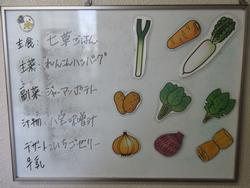 主食: 七草ごはん
主菜: れんこんハンバーグ
副菜: ジャーマンポテト
汁物: 八宝味噌汁
デザート: いちごゼリー
牛乳